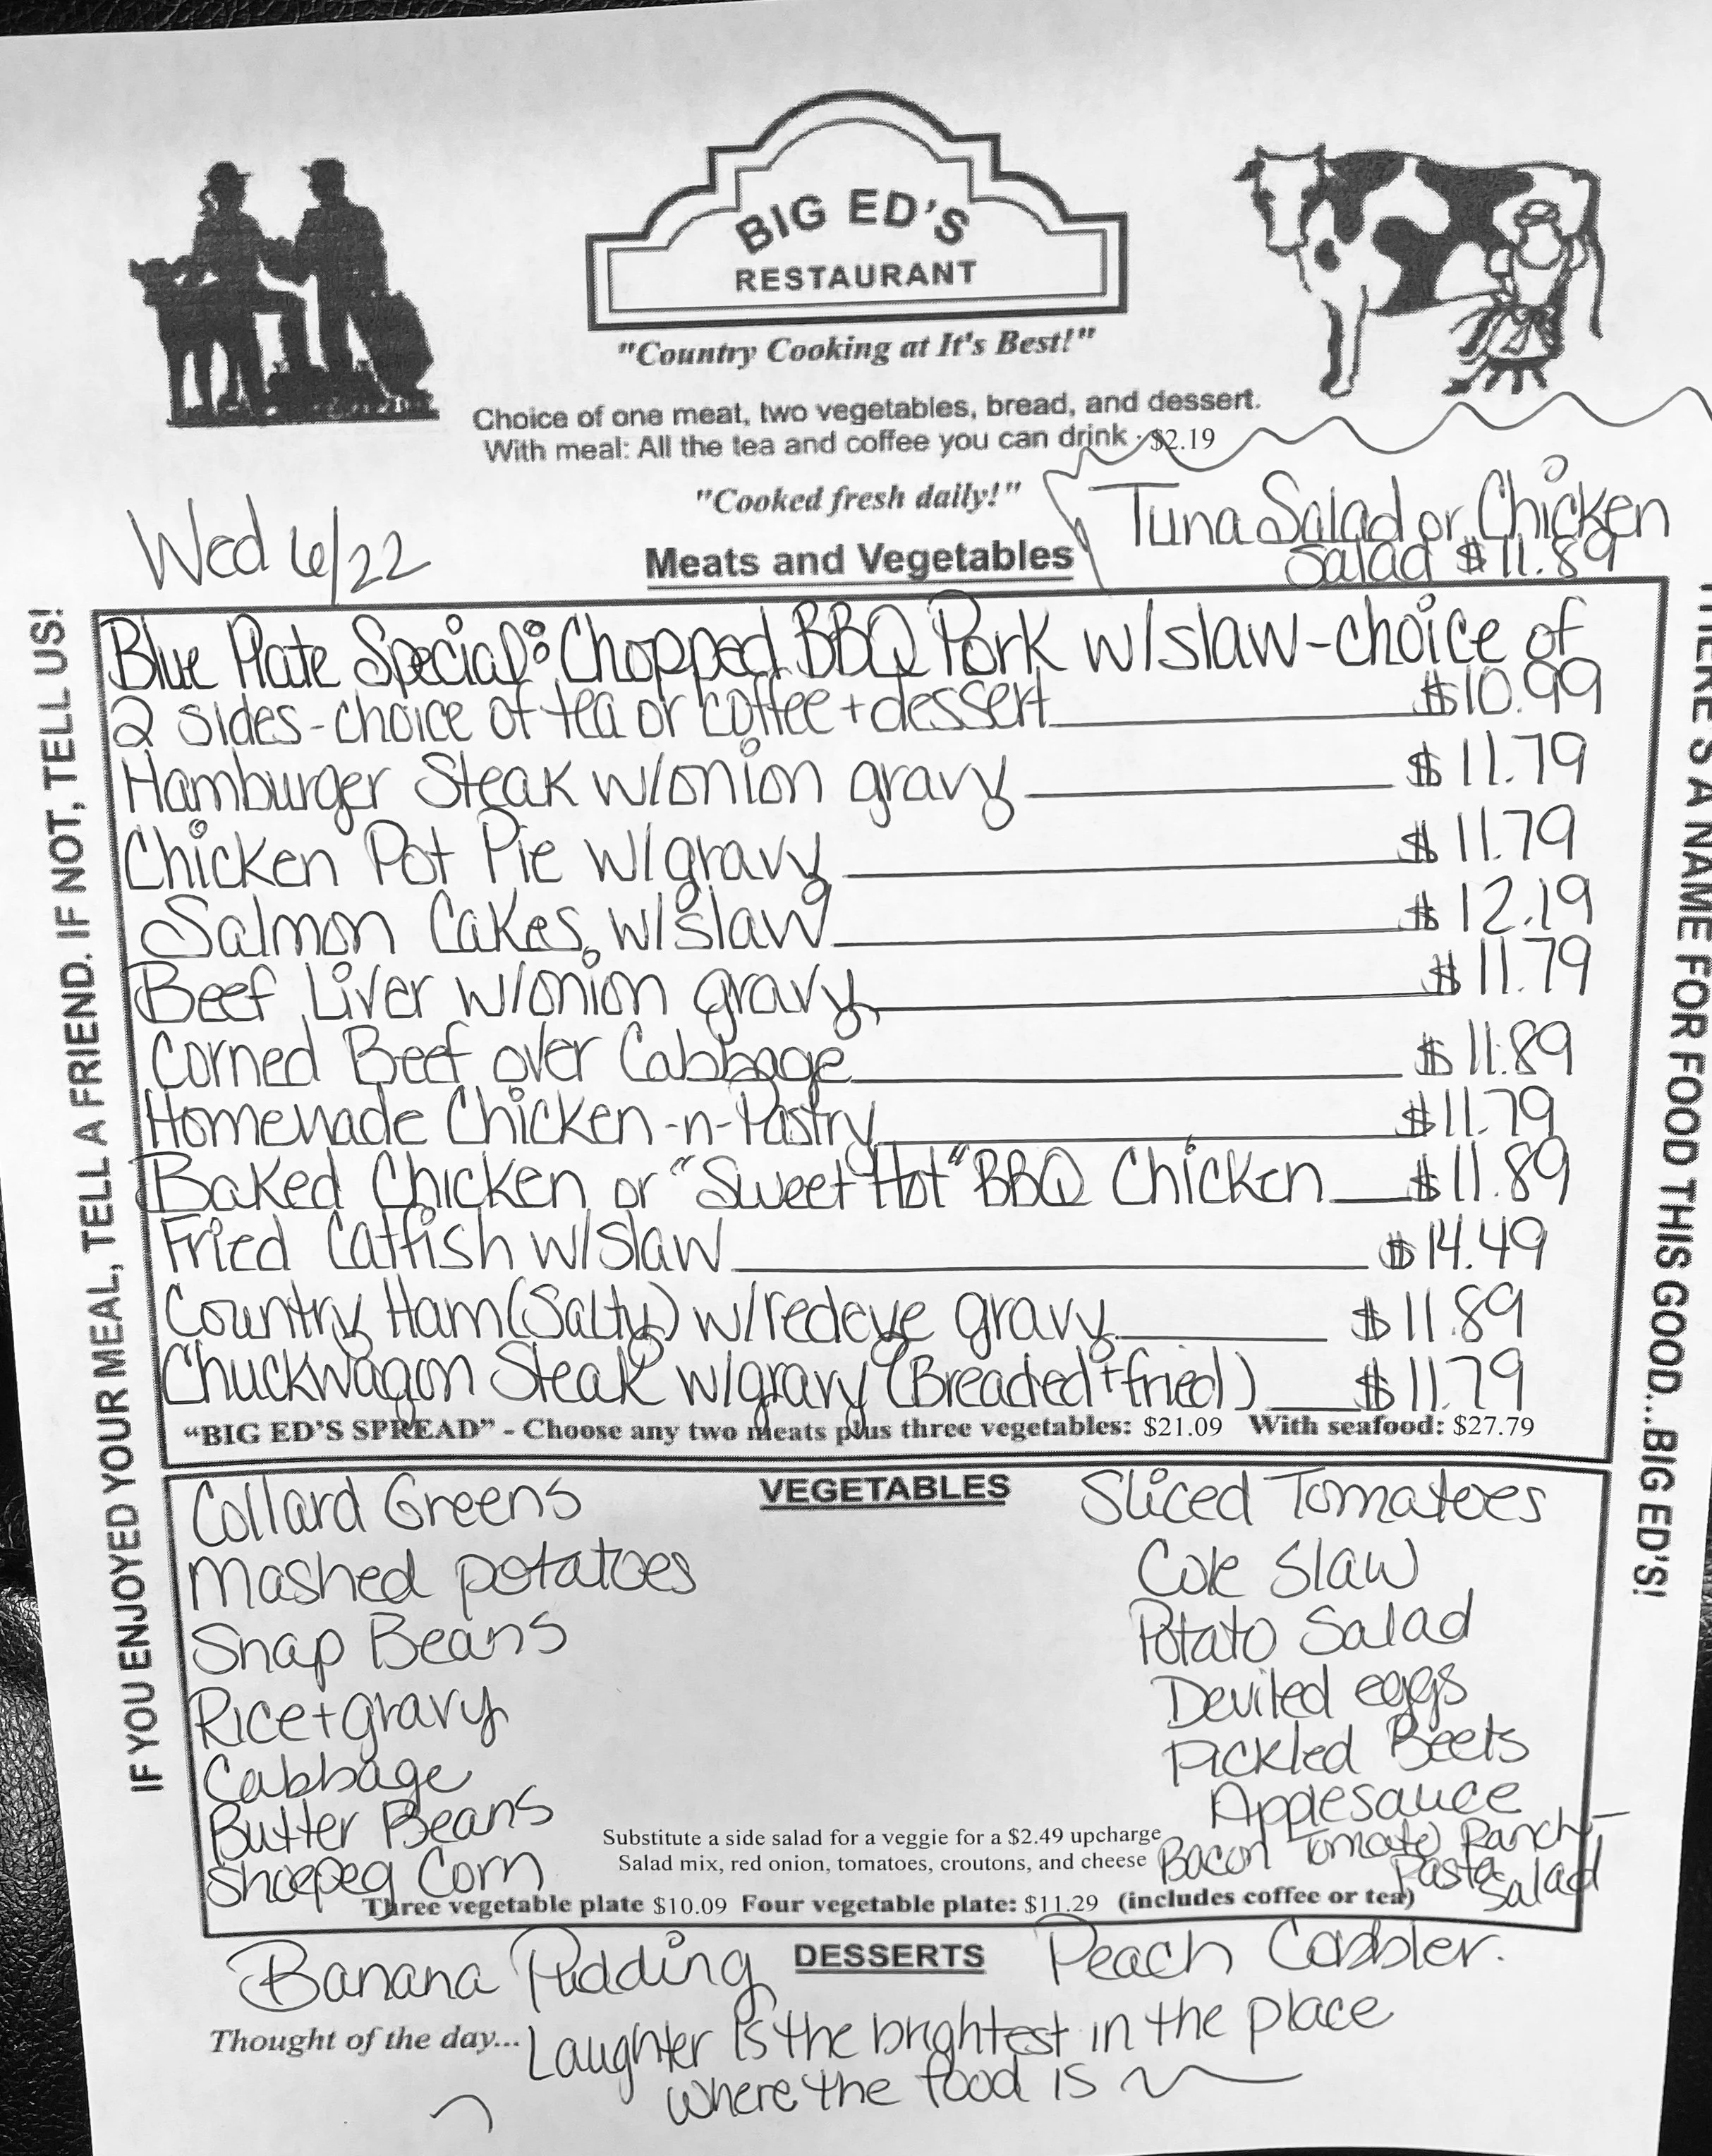 BIG ED'S
RESTAURANT
"Country Cooking at It's Best!"
Choice of one meat, two vegetables, bread, and dessert.
With meal: All the tea and coffee you can drink - $2.19
"Cooked fresh daily!"
Wed 6/22
Meats and Vegetables
Tuna Salad or Chicken
Salad $11.89
Blue Plate Special: Chopped BBQ Pork w/slaw-choice of
2 sides-choice of tea or coffee + dessert $10.99
Hamburger Steak w/onion gravy $11.79
Chicken Pot Pie w/gravy $11.79
Salmon Cakes w/slaw $12.19
Beef Liver w/onion gravy $11.79
Corned Beef over Cabbage $11.89
Homemade Chicken-n-Pastry $11.79
Baked Chicken or "Sweet Hot" BBQ Chicken $11.89
Fried Catfish w/slaw $14.49
Country Ham (Salty) w/redeye gravy $11.89
Chuckwagon Steak w/gravy (Breaded + fried) $11.79
"BIG ED'S SPREAD" - Choose any two meats plus three vegetables: $21.09 With seafood: $27.79
VEGETABLES
Collard Greens
Mashed potatoes
Snap Beans
Rice + gravy
Cabbage
Butter Beans
Shoepeg Corn
Sliced Tomatoes
Cole Slaw
Potato Salad
Deviled eggs
Pickled Beets
Applesauce
Bacon Tomato Ranch
Pasta
Salad
Substitute a side salad for a veggie for a $2.49 upcharge
Salad mix, red onion, tomatoes, croutons, and cheese
Three vegetable plate $10.09 Four vegetable plate: $11.29 (includes coffee or tea)
DESSERTS
Banana Pudding
Peach Cobbler.
Thought of the day... Laughter is the brightest in the place
where the food is
IF YOU ENJOYED YOUR MEAL, TELL A FRIEND. IF NOT, TELL US!
THERE'S A NAME FOR FOOD THIS GOOD...BIG ED'S!